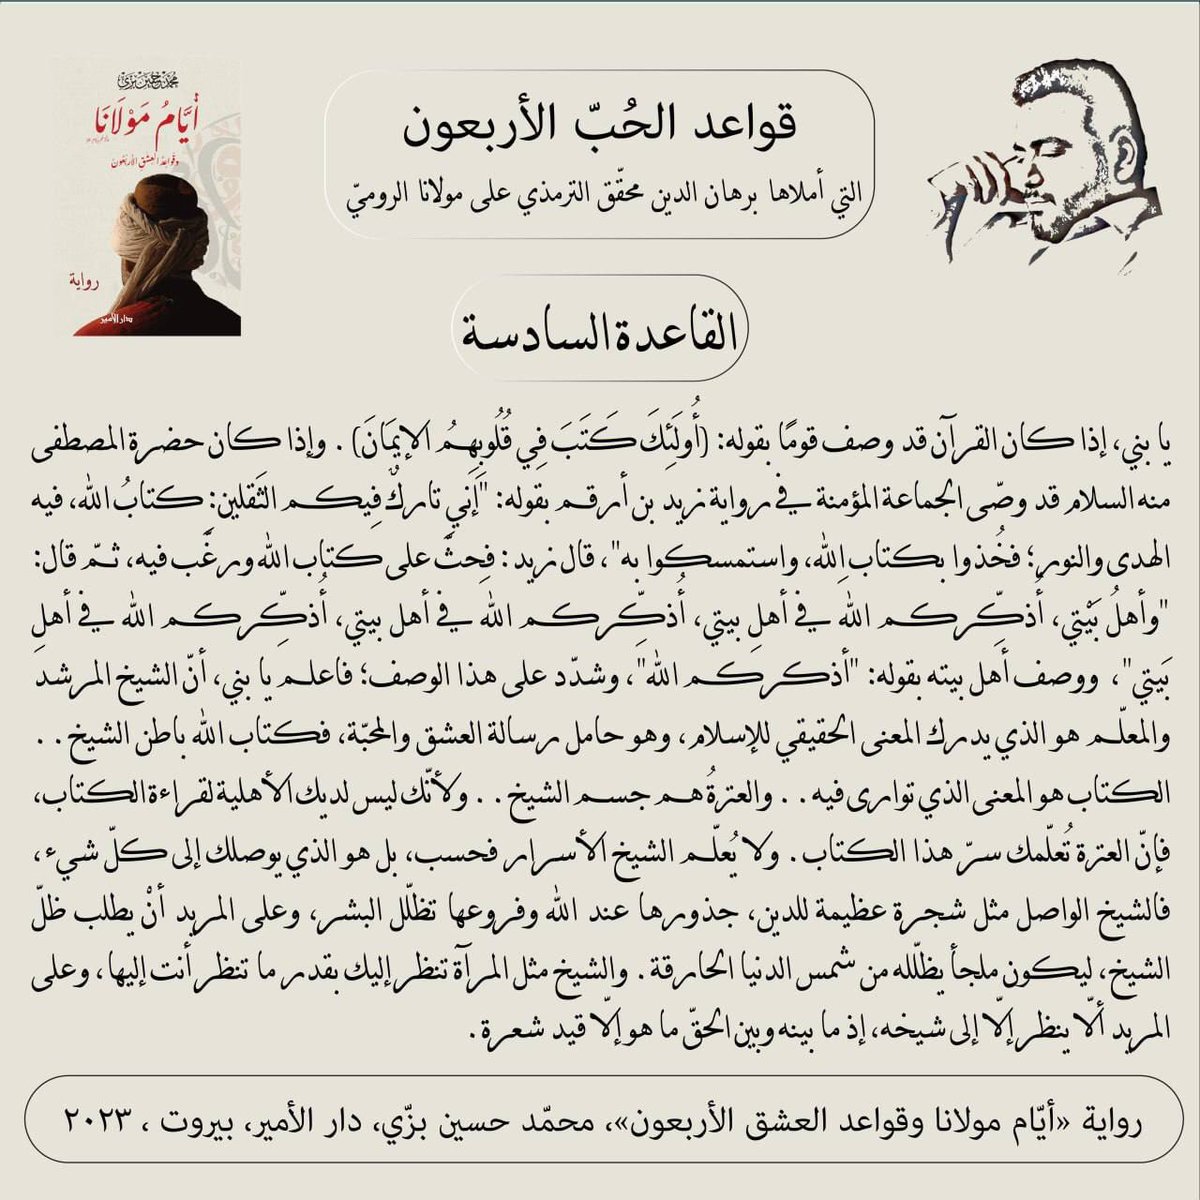 محمد حسين بزي
أيَّامُ مَوْلَانَا
وقواعد العشق الأربعون
رواية
دار الأمير
قواعد الحُبّ الأربعون
التي أملاها برهان الدين محقّق الترمذي على مولانا الروميّ
القاعدة السادسة
يا بني، إذا كان القرآن قد وصف قومًا بقوله: (أُولَئِكَ كَتَبَ فِي قُلُوبِهِمُ الإِيمَانَ) . وإذا كان حضرة المصطفى
منه السلام قد وصّى الجماعة المؤمنة في رواية زيد بن أرقم بقوله: "إني تاركٌ فِيكم الثَقلين: كتابُ الله، فيه
الهدى والنور؛ فخُذوا بكتابِ الله، واستمسكوا به"، قال زيد : فحثَّ على كتاب الله ورغَّب فيه، ثمّ قال:
"وأهلُ بَيْتي، أُذكِّركم الله في أهلِ بيتي، أُذكِّركم الله في أهل بيتي، أُذكِّركم الله في أهلِ
بَيتي"، ووصف أهل بيته بقوله: "أذكركم الله"، وشدّد على هذا الوصف؛ فاعلم يا بني، أنّ الشيخ المرشد
والمعلّم هو الذي يدرك المعنى الحقيقي للإسلام، وهو حامل رسالة العشق والمحبّة، فكتاب الله باطن الشيخ . .
الكتاب هو المعنى الذي توارى فيه . . والعترةُ هم جسم الشيخ . . ولأنّك ليس لديك الأهلية لقراءة الكتاب،
فإنّ العترة تُعلّمك سرّ هذا الكتاب . ولا يُعلّم الشيخ الأسرار فحسب، بل هو الذي يوصلك إلى كلّ شيء،
فالشيخ الواصل مثل شجرة عظيمة للدين، جذورها عند الله وفروعها تظلّل البشر، وعلى المريد أنْ يطلب ظلّ
الشيخ، ليكون ملجأ يظلّله من شمس الدنيا الحارقة . والشيخ مثل المرآة تنظر إليك بقدر ما تنظر أنت إليها، وعلى
المريد ألّا ينظر إلّا إلى شيخه، إذ ما بينه وبين الحقّ ما هو إلّا قيد شعرة .
رواية «أيّام مولانا وقواعد العشق الأربعون»، محمّد حسين بزّي، دار الأمير، بيروت ، ٢٠٢٣